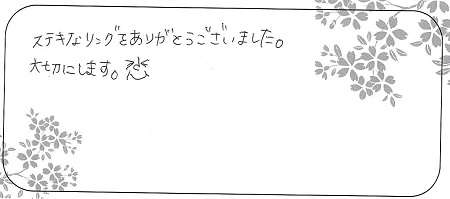 ステキなリングをありがとうございました。
大切にします。